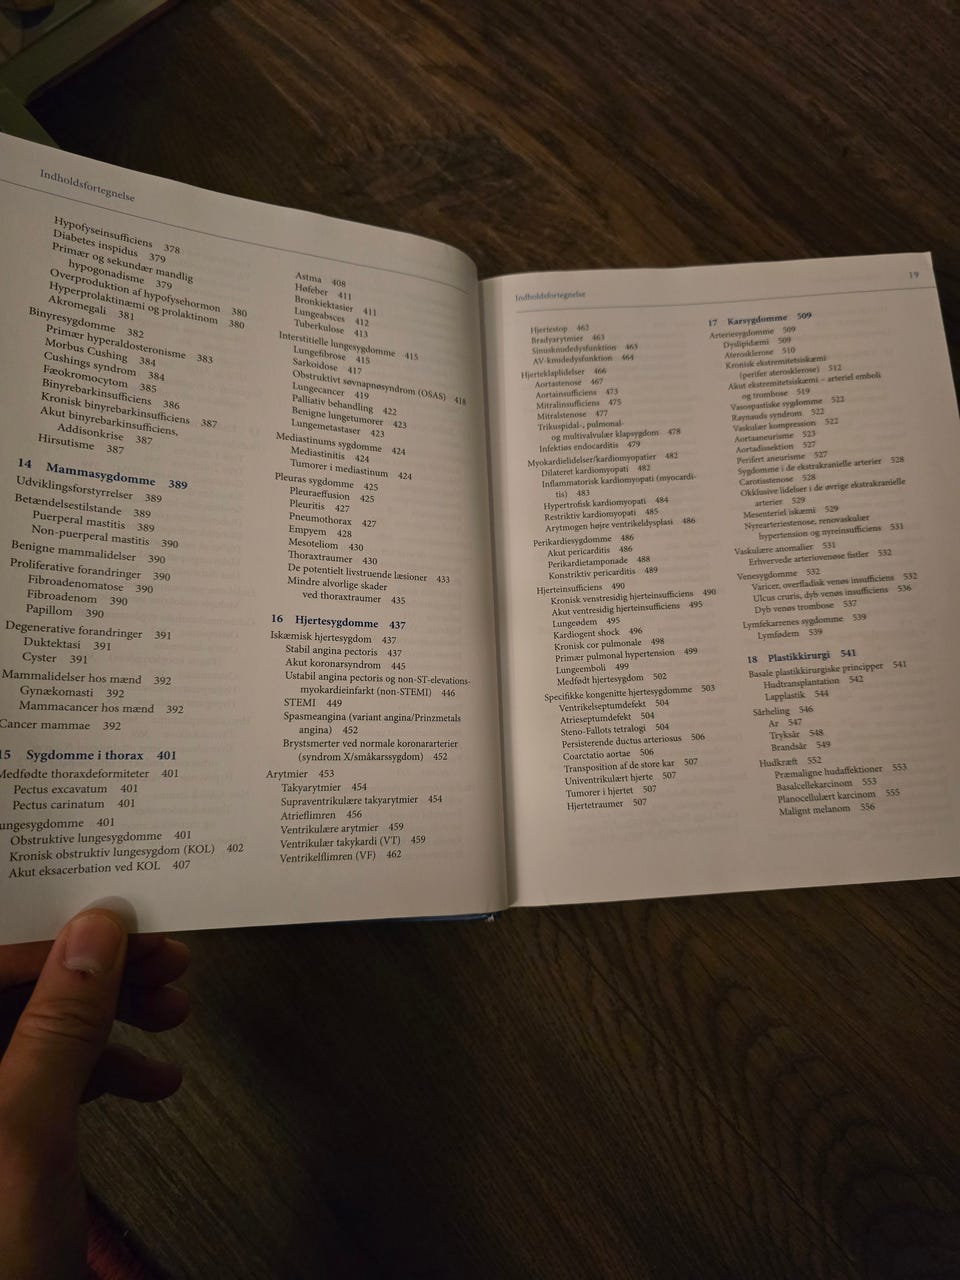 Indholdsfortegnelse
Hypofyseinsufficiens 378
Diabetes insipidus 379
Primær og sekundær mandlig
hypogonadisme 379
Overproduktion af hypofysehormon 380
Hyperprolaktinæmi og prolaktinom 380
Akromegali 381
Binyresygdomme 382
Primær hyperaldosteronisme 383
Morbus Cushing 384
Cushings syndrom 384
Fæokromocytom 385
Binyrebarkinsufficiens 386
Kronisk binyrebarkinsufficiens 387
Akut binyrebarkinsufficiens,
Addisonkrise 387
Hirsutisme 387
14 Mammasygdomme 389
Udviklingsforstyrrelser 389
Betændelsestilstande 389
Puerperal mastitis 389
Non-puerperal mastitis 390
Benigne mammalidelser 390
Proliferative forandringer 390
Fibroadenomatose 390
Fibroadenom 390
Papillom 390
Degenerative forandringer 391
Duktektasi 391
Cyster 391
Mammalidelser hos mænd 392
Gynækomasti 392
Mammacancer hos mænd 392
Cancer mammae 392
15 Sygdomme i thorax 401
Medfødte thoraxdeformiteter 401
Pectus excavatum 401
Pectus carinatum 401
ungesygdomme 401
Obstruktive lungesygdomme 401
Kronisk obstruktiv lungesygdom (KOL) 402
Akut eksacerbation ved KOL 407
Astma 408
Høfeber 411
Bronkiektasier 411
Lungeabsces 412
Tuberkulose 413
Interstitielle lungesygdomme 415
Lungefibrose 415
Sarkoidose 417
Obstruktivt søvnapnøsyndrom (OSAS) 418
Lungecancer 419
Palliativ behandling 422
Benigne lungetumorer 423
Lungemetastaser 423
Mediastinums sygdomme 424
Mediastinitis 424
Tumorer i mediastinum 424
Pleuras sygdomme 425
Pleuraeffusion 425
Pleuritis 427
Pneumothorax 427
Empyem 428
Mesoteliom 430
Thoraxtraumer 430
De potentielt livstruende læsioner 433
Mindre alvorlige skader
ved thoraxtraumer 435
16 Hjertesygdomme 437
Iskæmisk hjertesygdom 437
Stabil angina pectoris 437
Akut koronarsyndrom 445
Ustabil angina pectoris og non-ST-elevations-
myokardieinfarkt (non-STEMI) 446
STEMI 449
Spasmeangina (variant angina/Prinzmetals
angina) 452
Brystsmerter ved normale koronararterier
(syndrom X/småkarssygdom) 452
Arytmier 453
Takyarytmier 454
Supraventrikulære takyarytmier 454
Atrieflimren 456
Ventrikulære arytmier 459
Ventrikulær takykardi (VT) 459
Ventrikelflimren (VF) 462
Indholdsfortegnelse 19
Hjertestop 462
Bradyarytmier 463
Sinusknudedysfunktion 463
AV-knudedysfunktion 464
Hjerteklaplidelser 466
Aortastenose 467
Aortainsufficiens 473
Mitralinsufficiens 475
Mitralstenose 477
Trikuspidal-, pulmonal-
og multivalvulær klapsygdom 478
Infektiøs endocarditis 479
Myokardielidelser/kardiomyopatier 482
Dilateret kardiomyopati 482
Inflammatorisk kardiomyopati (myocardi-
tis) 483
Hypertrofisk kardiomyopati 484
Restriktiv kardiomyopati 485
Arytmogen højre ventrikeldysplasi 486
Perikardiesygdomme 486
Akut pericarditis 486
Perikardietamponade 488
Konstriktiv pericarditis 489
Hjerteinsufficiens 490
Kronisk venstresidig hjerteinsufficiens 490
Akut ventresidig hjerteinsufficiens 495
Lungeødem 495
Kardiogent shock 496
Kronisk cor pulmonale 498
Primær pulmonal hypertension 499
Lungeemboli 499
Medfødt hjertesygdom 502
Specifikke kongenitte hjertesygdomme 503
Ventrikelseptumdefekt 504
Atrieseptumdefekt 504
Steno-Fallots tetralogi 504
Persisterende ductus arteriosus 506
Coarctatio aortae 506
Transposition af de store kar 507
Univentrikulært hjerte 507
Tumorer i hjertet 507
Hjertetraumer 507
17 Karsygdomme 509
Arteriesygdomme 509
Dyslipidæmi 509
Aterosklerose 510
Kronisk ekstremitetsiskæmi
(perifer aterosklerose) 512
Akut ekstremitetsiskæmi – arteriel emboli
og trombose 519
Vasospastiske sygdomme 522
Raynauds syndrom 522
Vaskulær kompression 522
Aortaaneurisme 523
Aortadissektion 527
Perifert aneurisme 527
Sygdomme i de ekstrakranielle arterier 528
Carotisstenose 528
Okklusive lidelser i de øvrige ekstrakranielle
arterier 529
Mesenteriel iskæmi 529
Nyrearteriestenose, renovaskulær
hypertension og nyreinsufficiens 531
Vaskulære anomalier 531
Erhvervede arteriovenøse fistler 532
Venesygdomme 532
Varicer, overfladisk venøs insufficiens 532
Ulcus cruris, dyb venøs insufficiens 536
Dyb venøs trombose 537
Lymfekarrenes sygdomme 539
Lymfødem 539
18 Plastikkirurgi 541
Basale plastikkirurgiske principper 541
Hudtransplantation 542
Lapplastik 544
Sårheling 546
Ar 547
Tryksår 548
Brandsår 549
Hudkræft 552
Præmaligne hudaffektioner 553
Basalcellekarcinom 553
Planocellulært karcinom 555
Malignt melanom 556